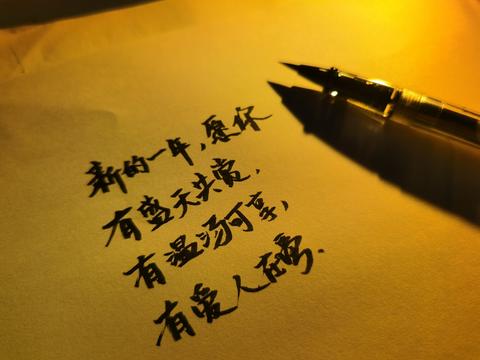 新的一年，愿你
有盛天共赏，
有温汤可享，
有爱人在旁．